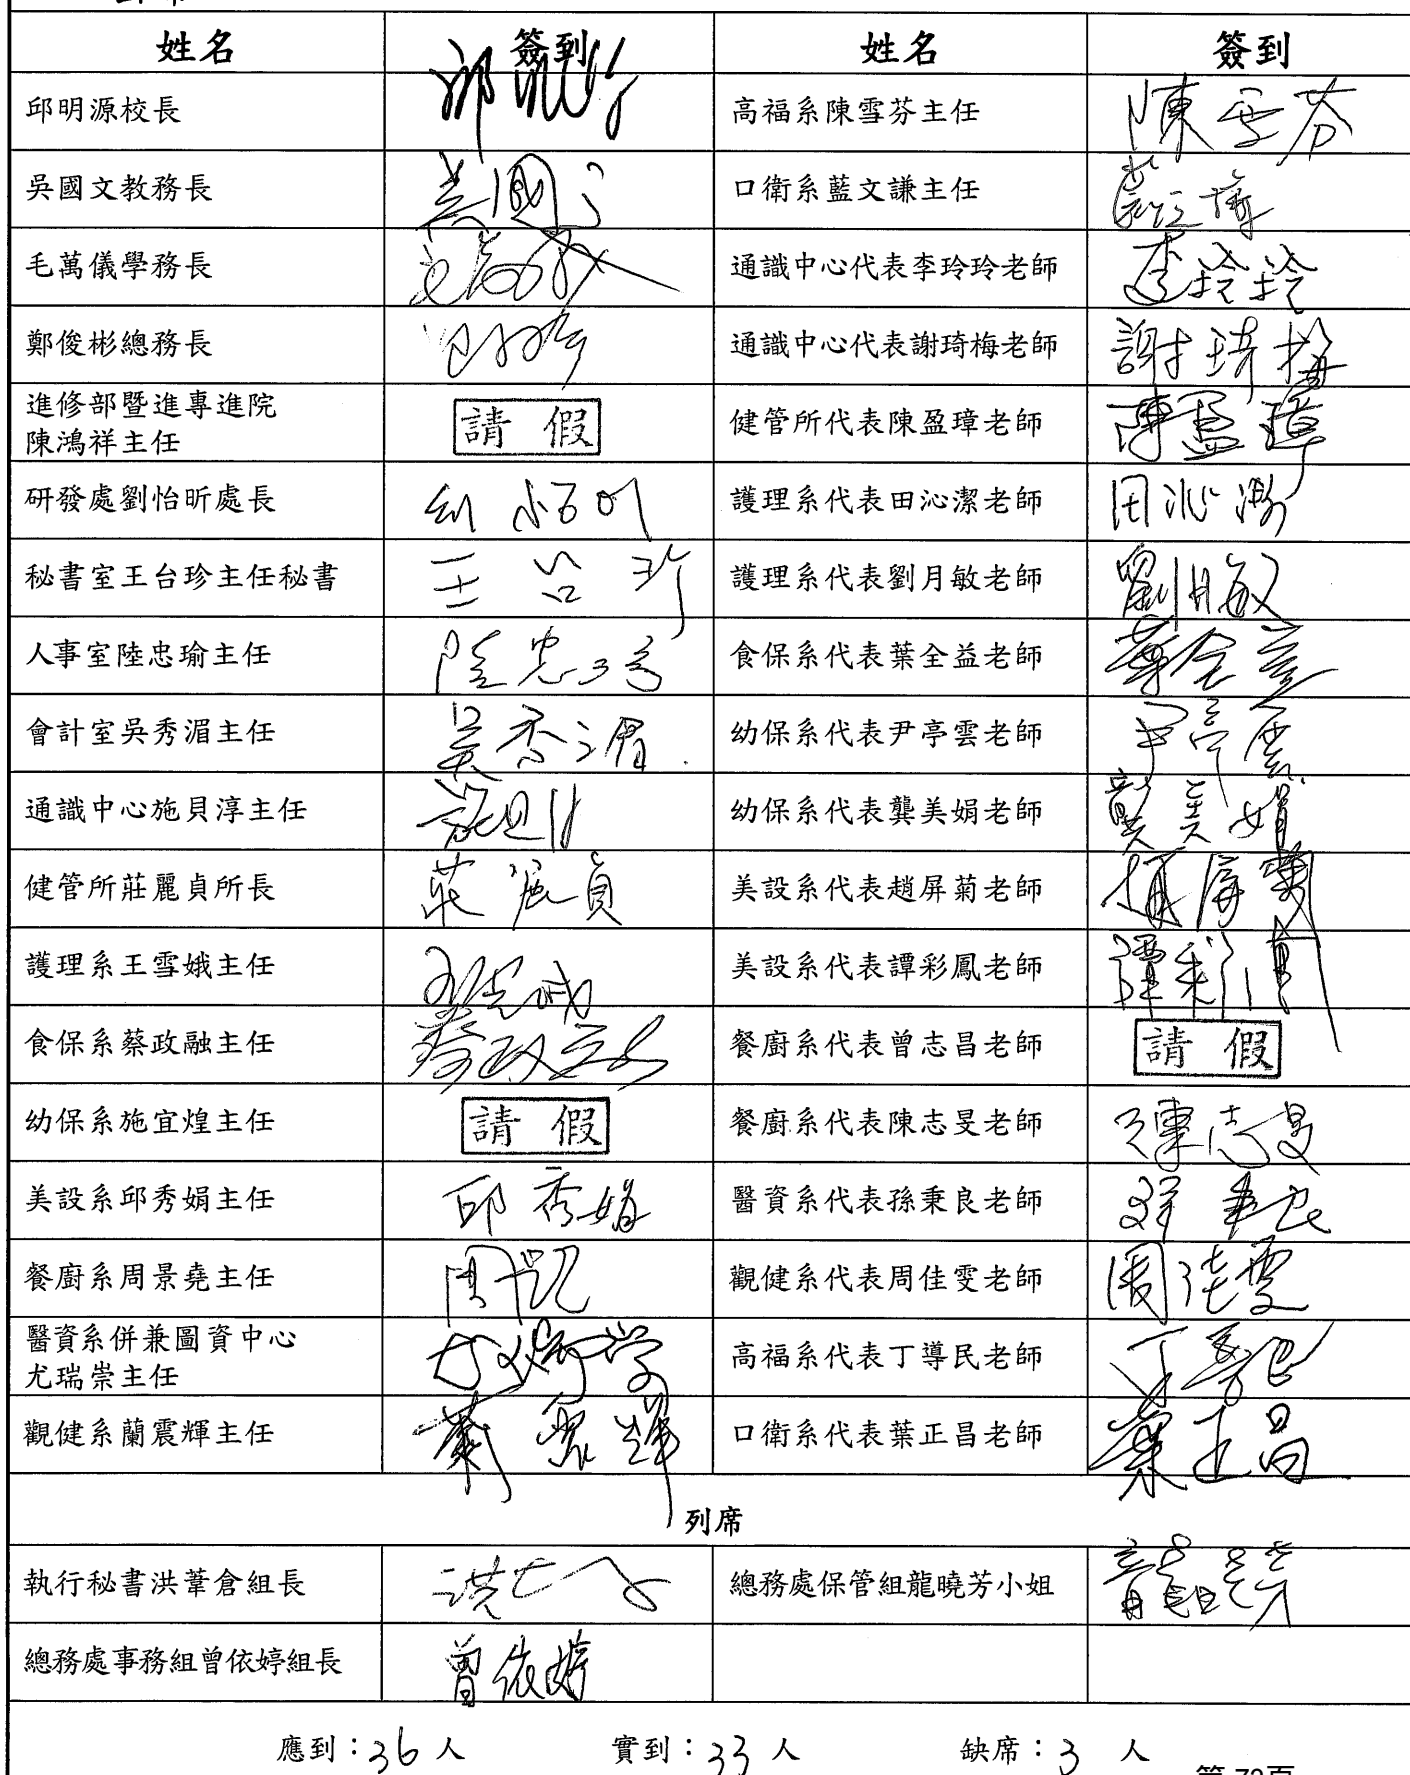 姓名 簽到 姓名 簽到
邱明源校長 高福系陳雪芬主任 陳雪芬
吳國文教務長 吳國文 口衛系藍文謙主任
毛萬儀學務長 通識中心代表李玲玲老師 李玲玲
鄭俊彬總務長 通識中心代表謝琦梅老師 謝琦梅
進修部暨進專進院
陳鴻祥主任 請假 健管所代表陳盈璋老師 陳盈璋
研發處劉怡昕處長 護理系代表田沁潔老師 田沁潔
秘書室王台珍主任秘書 王台珍 護理系代表劉月敏老師 劉月敏
人事室陸忠瑜主任 陸忠瑜 食保系代表葉全益老師 葉全益
會計室吳秀湄主任 吳秀湄 幼保系代表尹亭雲老師 尹亭雲
通識中心施貝淳主任 幼保系代表龔美娟老師 龔美娟
健管所莊麗貞所長 莊麗貞 美設系代表趙屏菊老師 趙屏菊
護理系王雪娥主任 美設系代表譚彩鳳老師 譚彩鳳
食保系蔡政融主任 蔡政融 餐廚系代表曾志昌老師 請假
幼保系施宜煌主任 請假 餐廚系代表陳志旻老師 陳志旻
美設系邱秀娟主任 邱秀娟 醫資系代表孫秉良老師 孫秉良
餐廚系周景堯主任 觀健系代表周佳雯老師 周佳雯
醫資系併兼圖資中心
尤瑞崇主任 高福系代表丁導民老師 丁導民
觀健系蘭震輝主任 蘭震輝 口衛系代表葉正昌老師 葉正昌
列席
執行秘書洪葦倉組長 總務處保管組龍曉芳小姐 龍曉芳
總務處事務組曾依婷組長 曾依婷
應到：36人 實到：33人 缺席：3人